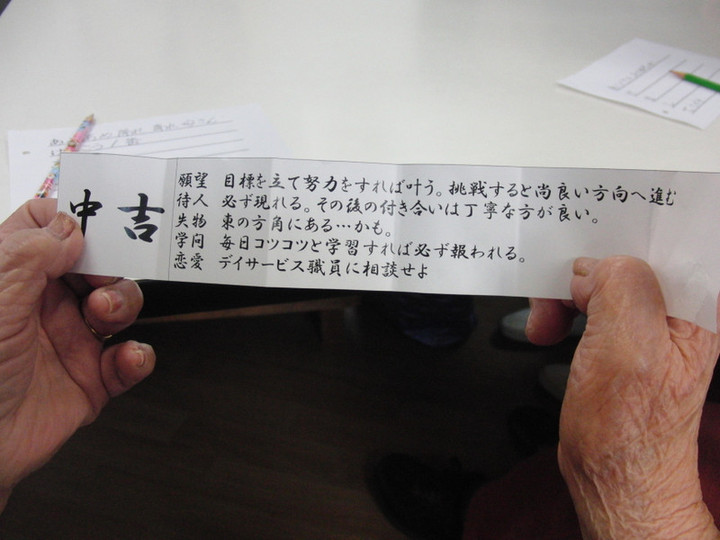 中吉
願望 目標を立て努力をすれば叶う。挑戦すると尚良い方向へ進む
待人 必ず現れる。その後の付き合いは丁寧な方が良い。
失物 東の方角にある…かも。
学問 毎日コツコツと学習すれば必ず報われる。
恋愛 デイサービス職員に相談せよ